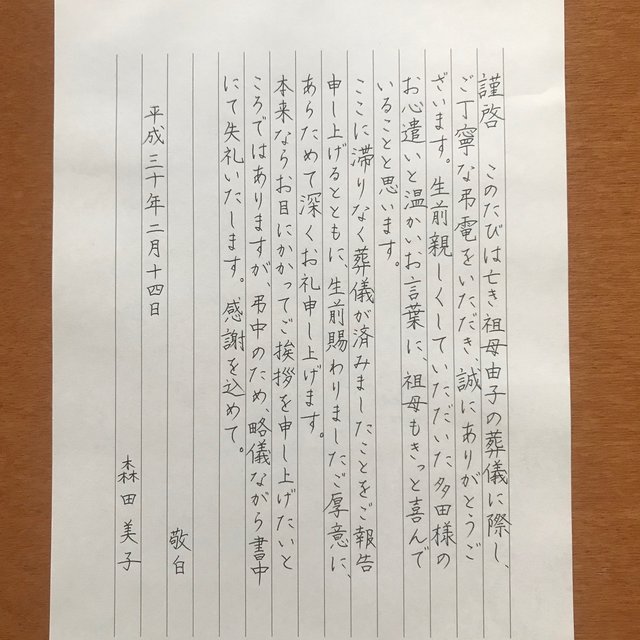 謹啓　このたびは亡き祖母由子の葬儀に際し、
ご丁寧な弔電をいただき、誠にありがとうご
ざいます。生前親しくしていただいた多田様の
お心遣いと温かいお言葉に、祖母もきっと喜んで
いることと思います。
ここに滞りなく葬儀が済みましたことをご報告
申し上げるとともに、生前賜わりましたご厚意に、
あらためて深くお礼申し上げます。
本来ならお目にかかってご挨拶を申し上げたいと
ころではありますが、弔中のため、略儀ながら書中
にて失礼いたします。感謝を込めて。
敬白
平成三十年二月十四日
森田美子